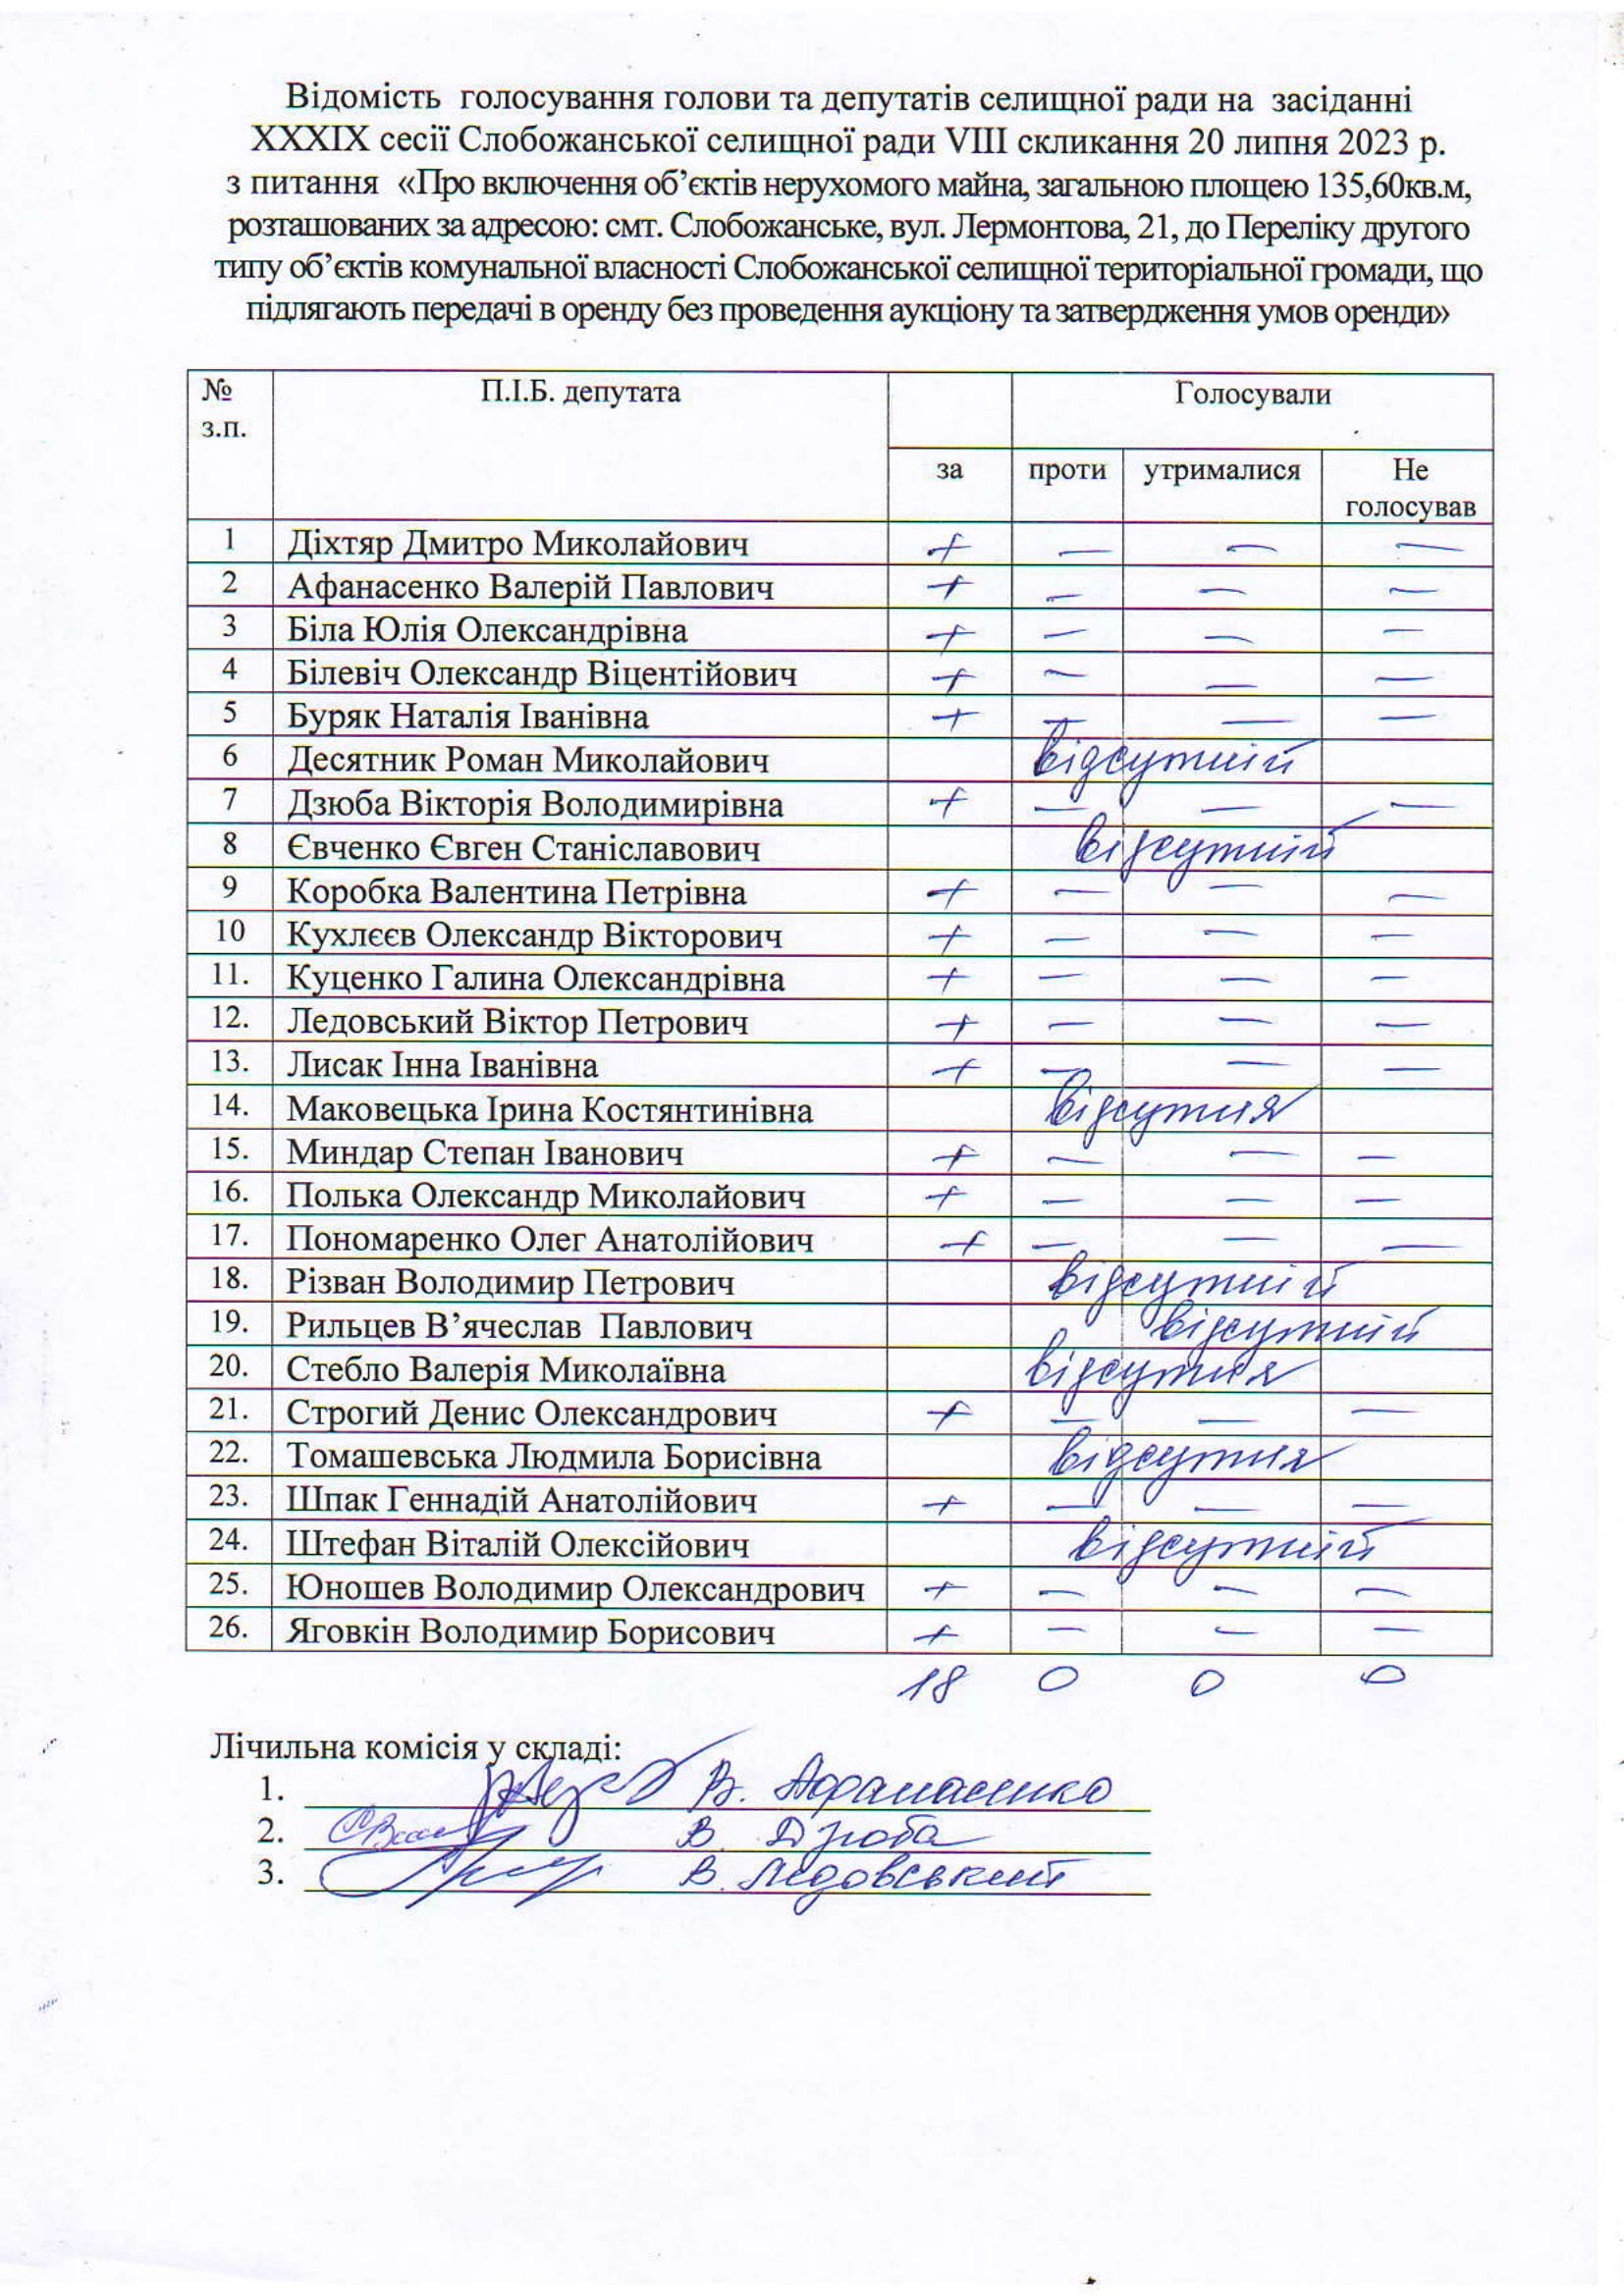 Відомість голосування голови та депутатів селищної ради на засіданні
XXXIX сесії Слобожанської селищної ради VIII скликання 20 липня 2023 р.
з питання «Про включення об’єктів нерухомого майна, загальною площею 135,60кв.м,
розташованих за адресою: смт. Слобожанське, вул. Лермонтова, 21, до Переліку другого
типу об’єктів комунальної власності Слобожанської селищної територіальної громади, що
підлягають передачі в оренду без проведення аукціону та затвердження умов оренди»
№ з.п. П.І.Б. депутата Голосували
за проти утрималися Не голосував
1 Діхтяр Дмитро Миколайович + — — —
2 Афанасенко Валерій Павлович + — — —
3 Біла Юлія Олександрівна + — — —
4 Білевіч Олександр Віцентійович + — — —
5 Буряк Наталія Іванівна + — — —
6 Десятник Роман Миколайович відсутній
7 Дзюба Вікторія Володимирівна + — — —
8 Євченко Євген Станіславович відсутній
9 Коробка Валентина Петрівна + — — —
10 Кухлєєв Олександр Вікторович + — — —
11. Куценко Галина Олександрівна + — — —
12. Ледовський Віктор Петрович + — — —
13. Лисак Інна Іванівна + — — —
14. Маковецька Ірина Костянтинівна відсутня
15. Миндар Степан Іванович + — — —
16. Полька Олександр Миколайович + — — —
17. Пономаренко Олег Анатолійович + — — —
18. Різван Володимир Петрович відсутній
19. Рильцев В’ячеслав Павлович відсутній
20. Стебло Валерія Миколаївна відсутня
21. Строгий Денис Олександрович + — — —
22. Томашевська Людмила Борисівна відсутня
23. Шпак Геннадій Анатолійович + — — —
24. Штефан Віталій Олексійович відсутній
25. Юношев Володимир Олександрович + — — —
26. Яговкін Володимир Борисович + — — —
18 0 0 0
Лічильна комісія у складі:
1. В. Афанасенко
2. В. Дзюба
3. В. Ледовський